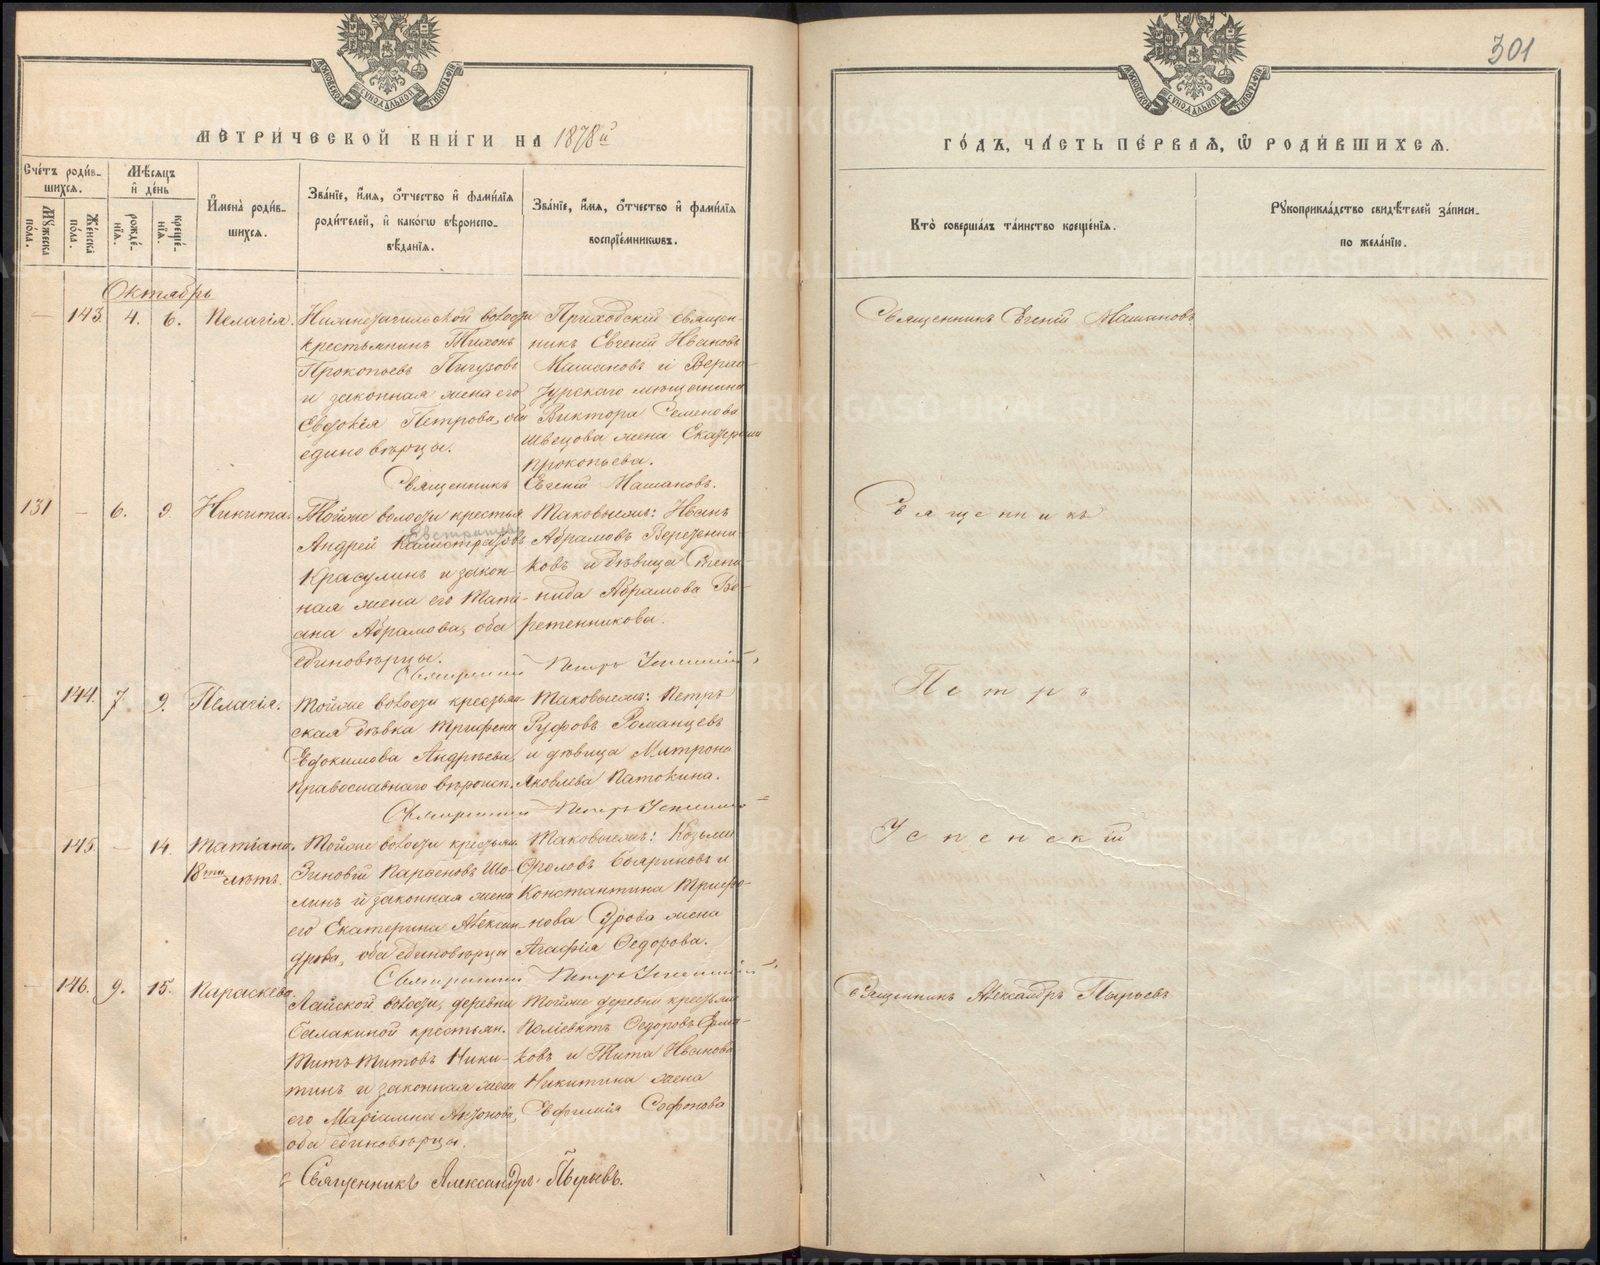 301
МЕТРИЧЕСКОЙ КНИГИ НА 1878й
ГОДЪ, ЧАСТЬ ПЕРВАЯ, Ѡ РОДИВШИХСЯ.
Счетъ родив-
шихся.
Мужеска пола.
Женска пола.
Мѣсяцъ и день
рожде-
нія.
креще-
нія.
Имена родив-
шихся.
Званіе, имя, отчество и фамилія
родителей, и какогѡ вѣроиспо-
вѣданія.
Званіе, имя, отчество и фамилія
воспріемниковъ.
Кто совершалъ таинство крещенія.
Рукоприкладство свидѣтелей записи
по желанію.
Октябрь
143. 4. 6. Пелагія.
Нижнетагильской волости
крестьянинъ Тихонъ
Прокопьевъ Пигузовъ
и законная жена его
Евдокія Петрова, оба
единовѣрцы.
Приходскій священ-
никъ Евгеній Ивановъ
Машановъ и Верхо-
турскаго мѣщанина
Виктора Семенова
Швецова жена Екатерина
Прокопьева.
Священникъ Евгеній Машановъ.
Священникъ Евгеній Машановъ
131 – 6. 9. Никита.
Тойже волости крестья
Андрей Калистратовъ
Красулинъ и закон-
ная жена его Тати-
ана Абрамова, оба
единовѣрцы.
Таковыежъ: Иванъ
Абрамовъ Веретенни
ковъ и дѣвица Степа-
нида Абрамова Ве-
ретенникова.
Священникъ Петръ Успенскій
Священникъ
144. 7. 9. Пелагія.
Тойже волости крестьян-
ская дѣвка Трифена
Евдокимова Андрѣева
православнаго вѣроисп.
Таковыежъ: Петръ
Руфовъ Романцевъ
и дѣвица Матрона
Яковлева Патокина.
Священникъ Петръ Успенскій
Петръ
145. – 14. Татіана,
18ти лѣтъ.
Тойже волости крестьян.
Зиновій Парѳеновъ Шо-
линъ и законная жена
его Екатерина Алексан-
дрова, оба единовѣрцы
Таковыежъ: Козьма
Фроловъ Бояриновъ и
Константина Трифо-
нова Дурова жена
Агафія Ѳедорова.
Священникъ Петръ Успенскій
Успенскій
146. 9. 15. Параскева
Лайской волости, деревни
Балакиной крестьян.
Титъ Титовъ Ники-
тинъ и законная жена
его Маріамна Антонова,
оба единовѣрцы.
Тойже деревни крестьян
Поліевктъ Ѳедоровъ Ерма-
ковъ и Тита Иванова
Никитина жена
Евфимія Софонова
Священникъ Александръ Пырьевъ.
Священникъ Александръ Пырьевъ
METRIKI.GASO-URAL.RU